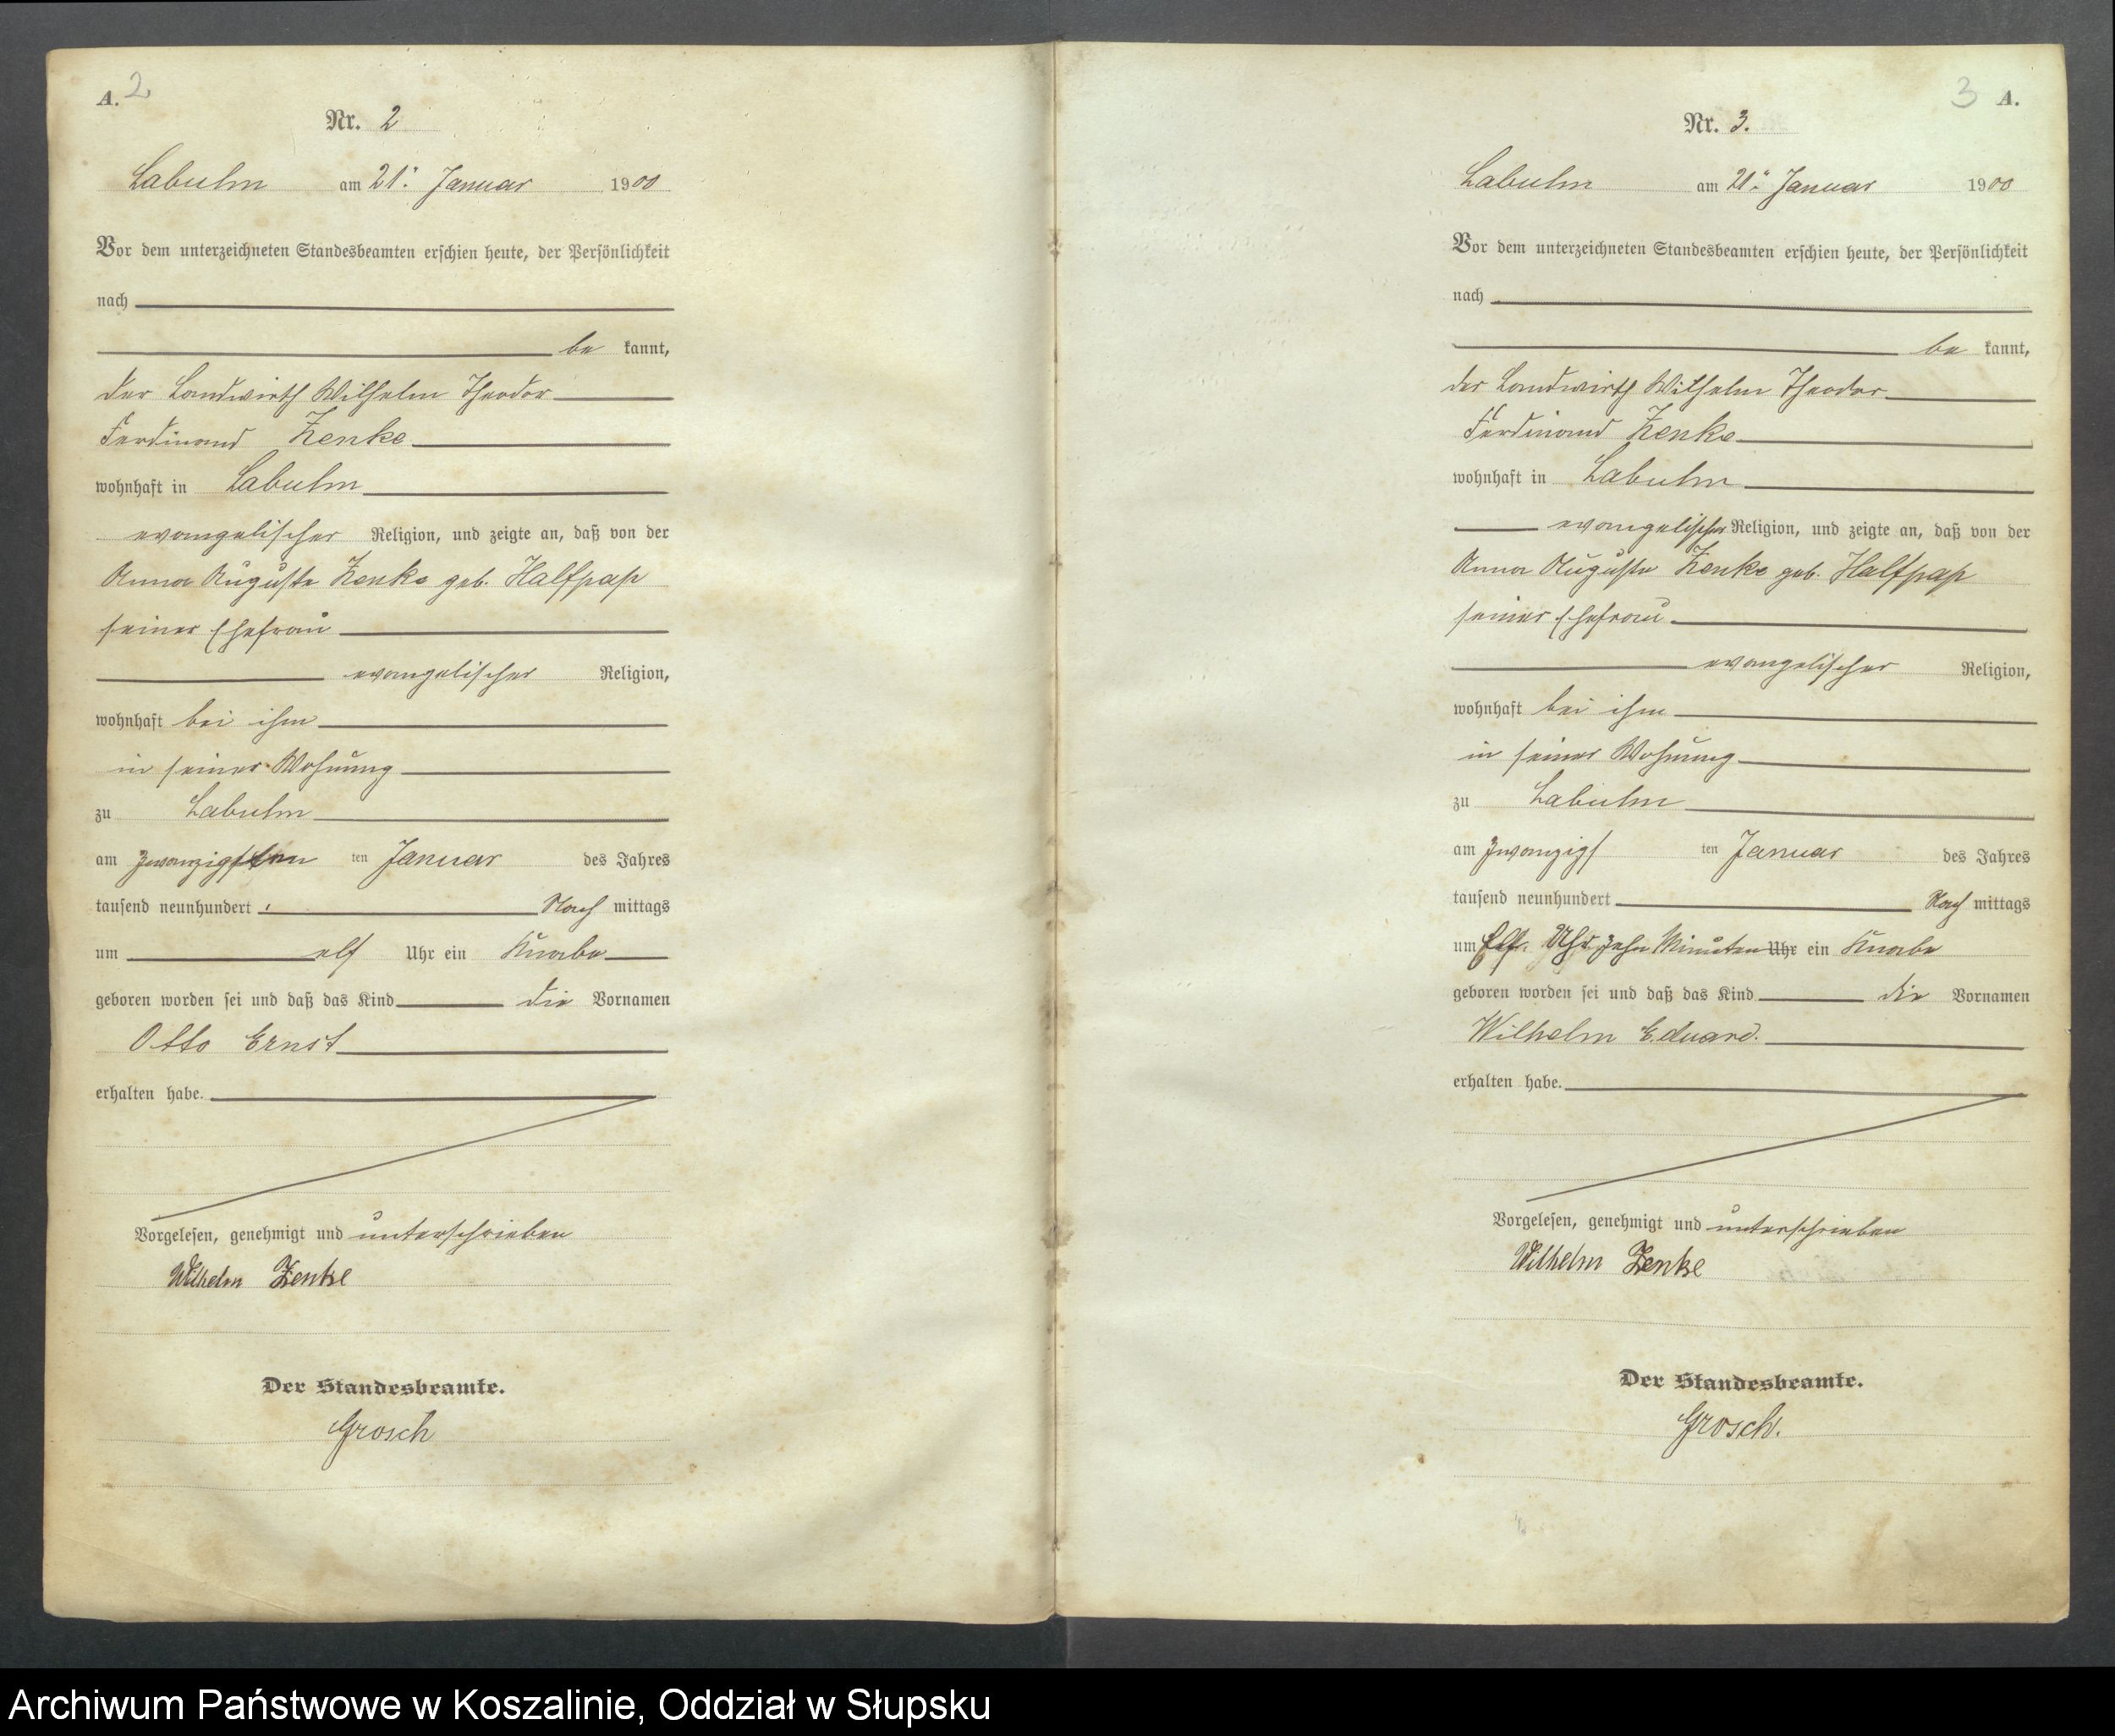 A. 2
Nr. 2
Labuhn am 21. Januar 1900
Vor dem unterzeichneten Standesbeamten erschien heute, der Persönlichkeit
nach
be kannt,
der Landwirth Wilhelm Theodor
Ferdinand Zenke
wohnhaft in Labuhn
evangelischer Religion, und zeigte an, daß von der
Anna Auguste Zenke geb. Halfpap
seiner Ehefrau
evangelischer Religion,
wohnhaft bei ihm
in seiner Wohnung
zu Labuhn
am zwanzigsten ten Januar des Jahres
tausend neunhundert Nach mittags
um elf Uhr ein Knabe
geboren worden sei und daß das Kind die Vornamen
Otto Ernst
erhalten habe.
Vorgelesen, genehmigt und unterschrieben
Wilhelm Zenke
Der Standesbeamte.
Grosch
3 A.
Nr. 3.
Labuhn am 21. Januar 1900
Vor dem unterzeichneten Standesbeamten erschien heute, der Persönlichkeit
nach
be kannt,
der Landwirth Wilhelm Theodor
Ferdinand Zenke
wohnhaft in Labuhn
evangelischer Religion, und zeigte an, daß von der
Anna Auguste Zenke geb. Halfpap
seiner Ehefrau
evangelischer Religion,
wohnhaft bei ihm
in seiner Wohnung
zu Labuhn
am zwanzigs ten Januar des Jahres
tausend neunhundert Nach mittags
um Elf Uhr zehn Minuten Uhr ein Knabe
geboren worden sei und daß das Kind die Vornamen
Wilhelm Eduard.
erhalten habe.
Vorgelesen, genehmigt und unterschrieben
Wilhelm Zenke
Der Standesbeamte.
Grosch.
Archiwum Państwowe w Koszalinie, Oddział w Słupsku